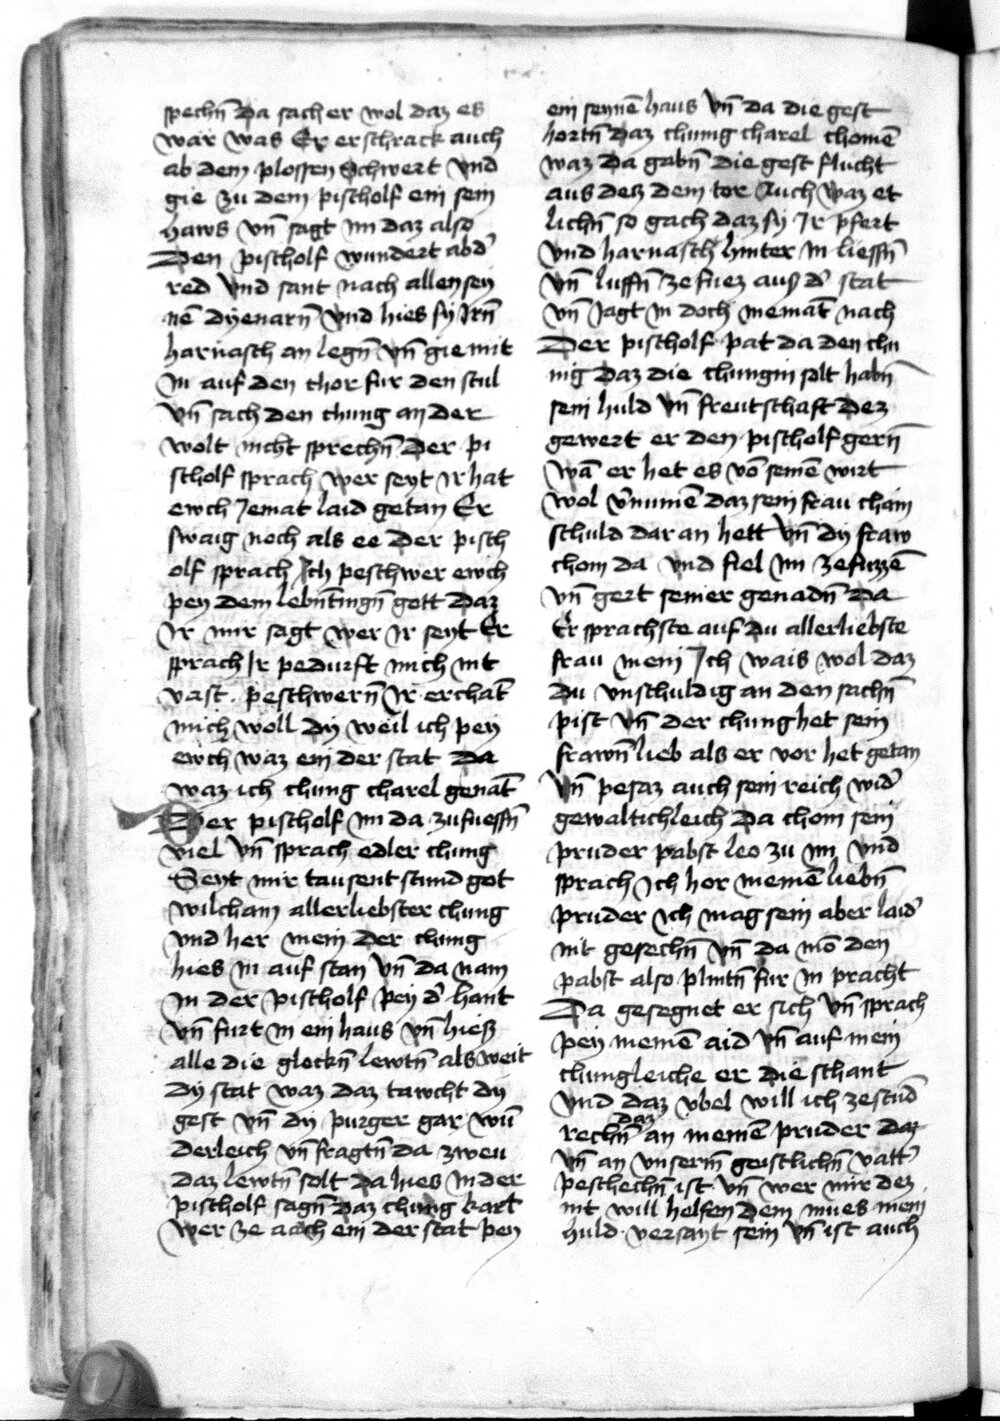 spechn̄ Da sach er wol daz es
war was Er erschrack auch
ab dem plossen Schwert Vnd
gie zu dem pischolf ein sein
haws vn̄ sagt im daz also
Den pischolf wundert ab d'
red vnd sant nach allen sey
nē dyenarn̄ vnd hies sy Irn̄
harnasch an legn̄ vn̄ gie mit
In auf den chor fur den stul
vn̄ sach den chung an der
wolt nicht sprechn̄ Der pi
scholf sprach wer seyt Ir hat
ewch Jemāt laid getan Er
swaig noch als ee Der pisch
olf sprach Ich peschwer ewch
pey dem lebn̄tingn̄ gott daz
Ir mir sagt wer Ir seyt Er
sprach Ir pedurft mich nit
vast peschwern̄ Ir erchāt
mich woll dy weil ich pey
ewch waz ein der stat Da
waz ich chung charel genāt
Der pischolf im da zufuessn̄
viel vn̄ sprach edler chung
Seyt mir tausent stund got
wilcham allerliebster chung
vnd her mein Der chung
hies In auf stan vn̄ da nam
In der pischolf pey d' hant
vn̄ furt In ein haus vn̄ hiess
alle die glockn̄ lewtn̄ als weit
dy stat waz daz tawcht dy
gest vn̄ dy purger gar wū
derleich vn̄ fragtn̄ da zweu
daz lewtn̄ solt da hies In der
pischolf sagn̄ daz chung karl
wer ze aach ein der stat pey
ein seinnē haus Vn̄ da die gest
hortn̄ daz chunig charel chomē
waz da gabn̄ die gest flucht
aus dez dem tor Auch waz et
lichn̄ so gach daz sy Ir pfert
vnd harnasch hinter In liessn̄
vn̄ luffn̄ ze fuez aus d' stat
vn̄ Jagt In doch niemāt nach
Der pischolf pat da den chu
nig daz die chungin solt habn̄
sein huld vn̄ freutschaft dez
gewert er den pischolf gern̄
wā er het es vō seinē wirt
wol v'numē daz sein frau chain
schuld dar an hett vn̄ dy fraw
chom da vnd fiel Im ze fuzzē
vn̄ gert seiner genadn̄ Da
Er sprach ste auf du allerliebste
frau mein Ich wais wol daz
du vnschuldig an den sachn̄
pist vn̄ der chung het sein
frawn̄ lieb als er vor het getan
vn̄ pesaz auch sein reich wid'
gewaltichleich Da chom sein
pruder pabst leo zu Im vnd
sprach Ich hor meinē liebn̄
pruder Ich mag sein aber laid'
nit gesechn̄ vn̄ da mō den
pabst also plintn̄ fur In pracht
Da gesegnet er sich vn̄ sprach
pey meinē aid vn̄ auf mein
chungleiche er die schant
vnd daz vbel will ich ze stūd
rechn̄ daz an meinē pruder daz
vn̄ an vnserm̄ geistlichn̄ vatt'
peschechn̄ ist vn̄ wer mir dez
nit will helfen dem mues mein
huld versayt sein vn̄ ist auch